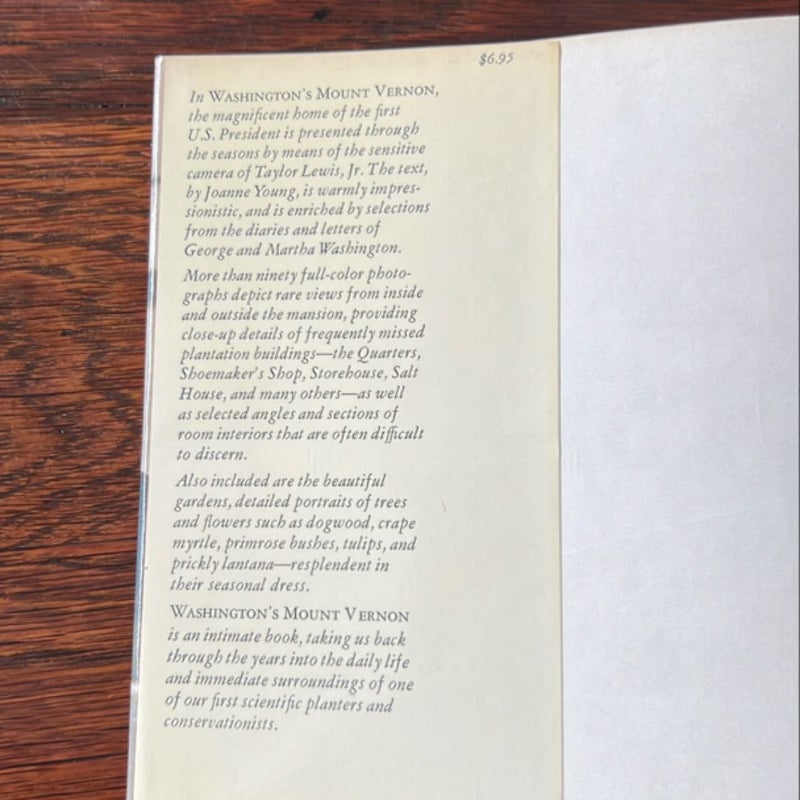 $6.95
In WASHINGTON'S MOUNT VERNON,
the magnificent home of the first
U.S. President is presented through
the seasons by means of the sensitive
camera of Taylor Lewis, Jr. The text,
by Joanne Young, is warmly impres-
sionistic, and is enriched by selections
from the diaries and letters of
George and Martha Washington.
More than ninety full-color photo-
graphs depict rare views from inside
and outside the mansion, providing
close-up details of frequently missed
plantation buildings—the Quarters,
Shoemaker's Shop, Storehouse, Salt
House, and many others—as well
as selected angles and sections of
room interiors that are often difficult
to discern.
Also included are the beautiful
gardens, detailed portraits of trees
and flowers such as dogwood, crape
myrtle, primrose bushes, tulips, and
prickly lantana—resplendent in
their seasonal dress.
WASHINGTON'S MOUNT VERNON
is an intimate book, taking us back
through the years into the daily life
and immediate surroundings of one
of our first scientific planters and
conservationists.